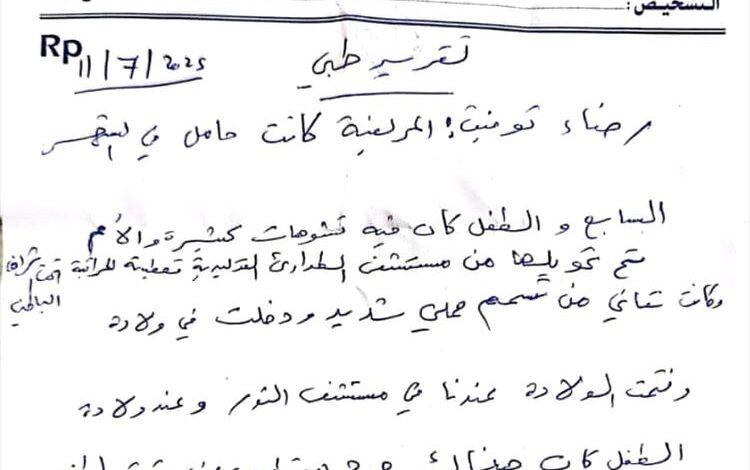 التشخيص:
Rp 11/7/2025 تقرير طبي
رضاء توفيت: المريضة كانت حامل في الشهر
السابع و الطفل كان فيه تشوهات كثيرة والأم
تم تحويلها من مستشفى الطوارئ التوليدية تعطية للمراقبة تحت اشراف الباطني
وكانت تعاني من تسمم حملي شديد ودخلت في ولادة
وتمت الولادة عندنا في مستشفى النور وعند ولادة
الطفل كان هناك